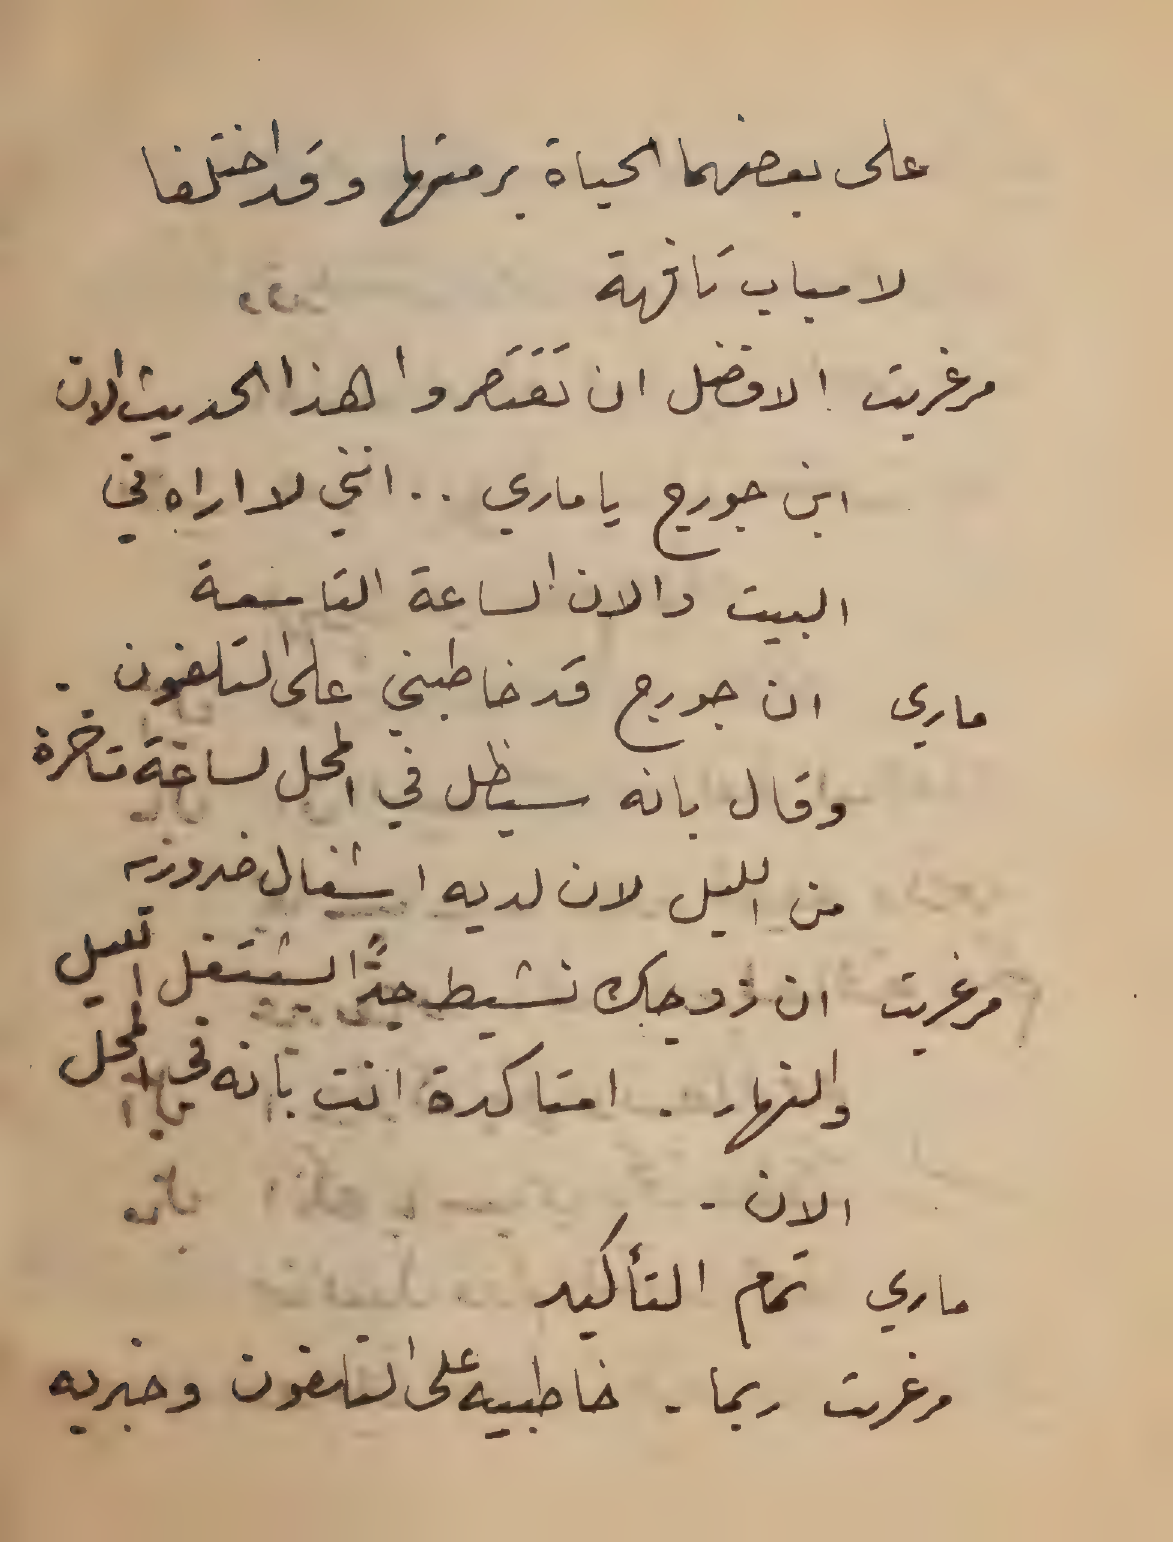 على بعضهما الحياة برمتها وقد اختلفا
لاسباب تافهة
مرغريت الافضل ان تقتصروا هذا الحديث الان
اين جورج يا ماري .. انني لا اراه في
البيت والان الساعة التاسعة
ماري ان جورج قد خاطبني على التلفون .
وقال بانه سيظل في المحل لساعة متاخرة
من الليل لان لديه اشغال ضرورية
مرغريت ان زوجك نشيط جدًا ايشتغل الليل
والنهار . امتاكدة انت بانه في المحل
الان .
ماري تمام التأكيد
مرغريت ربما . خاطبيه على التلفون وخبريه